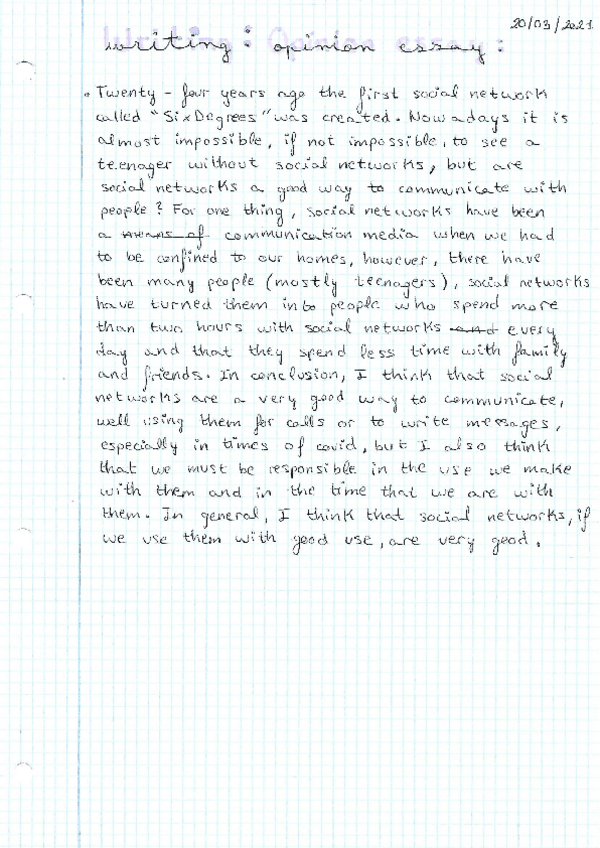 20/03/2021
Writing: opinion essay:
• Twenty-four years ago the first social network
called "SixDegrees" was created. Nowadays it is
almost impossible, if not impossible, to see a
teenager without social networks, but are
social networks a good way to communicate with
people? For one thing, social networks have been
a means of communication media when we had
to be confined to our homes, however, there have
been many people (mostly teenagers), social networks
have turned them into people who spend more
than two hours with social networks and every
day and that they spend less time with family
and friends. In conclusion, I think that social
networks are a very good way to communicate,
well using them for calls or to write messages,
especially in times of covid, but I also think
that we must be responsible in the use we make
with them and in the time that we are with
them. In general, I think that social networks, if
we use them with good use, are very good.